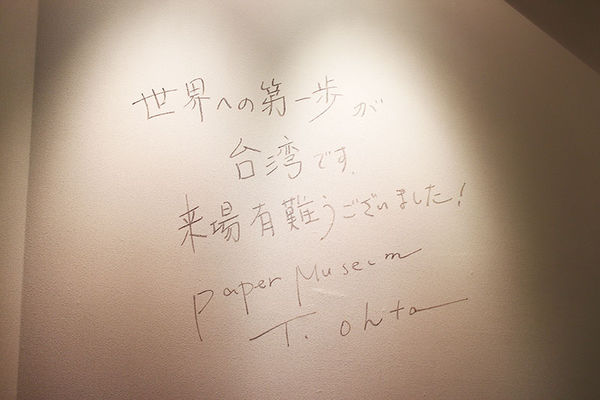 世界への第一歩が
台湾です.
来場有難うございました!
Paper Museum
T. Ohta